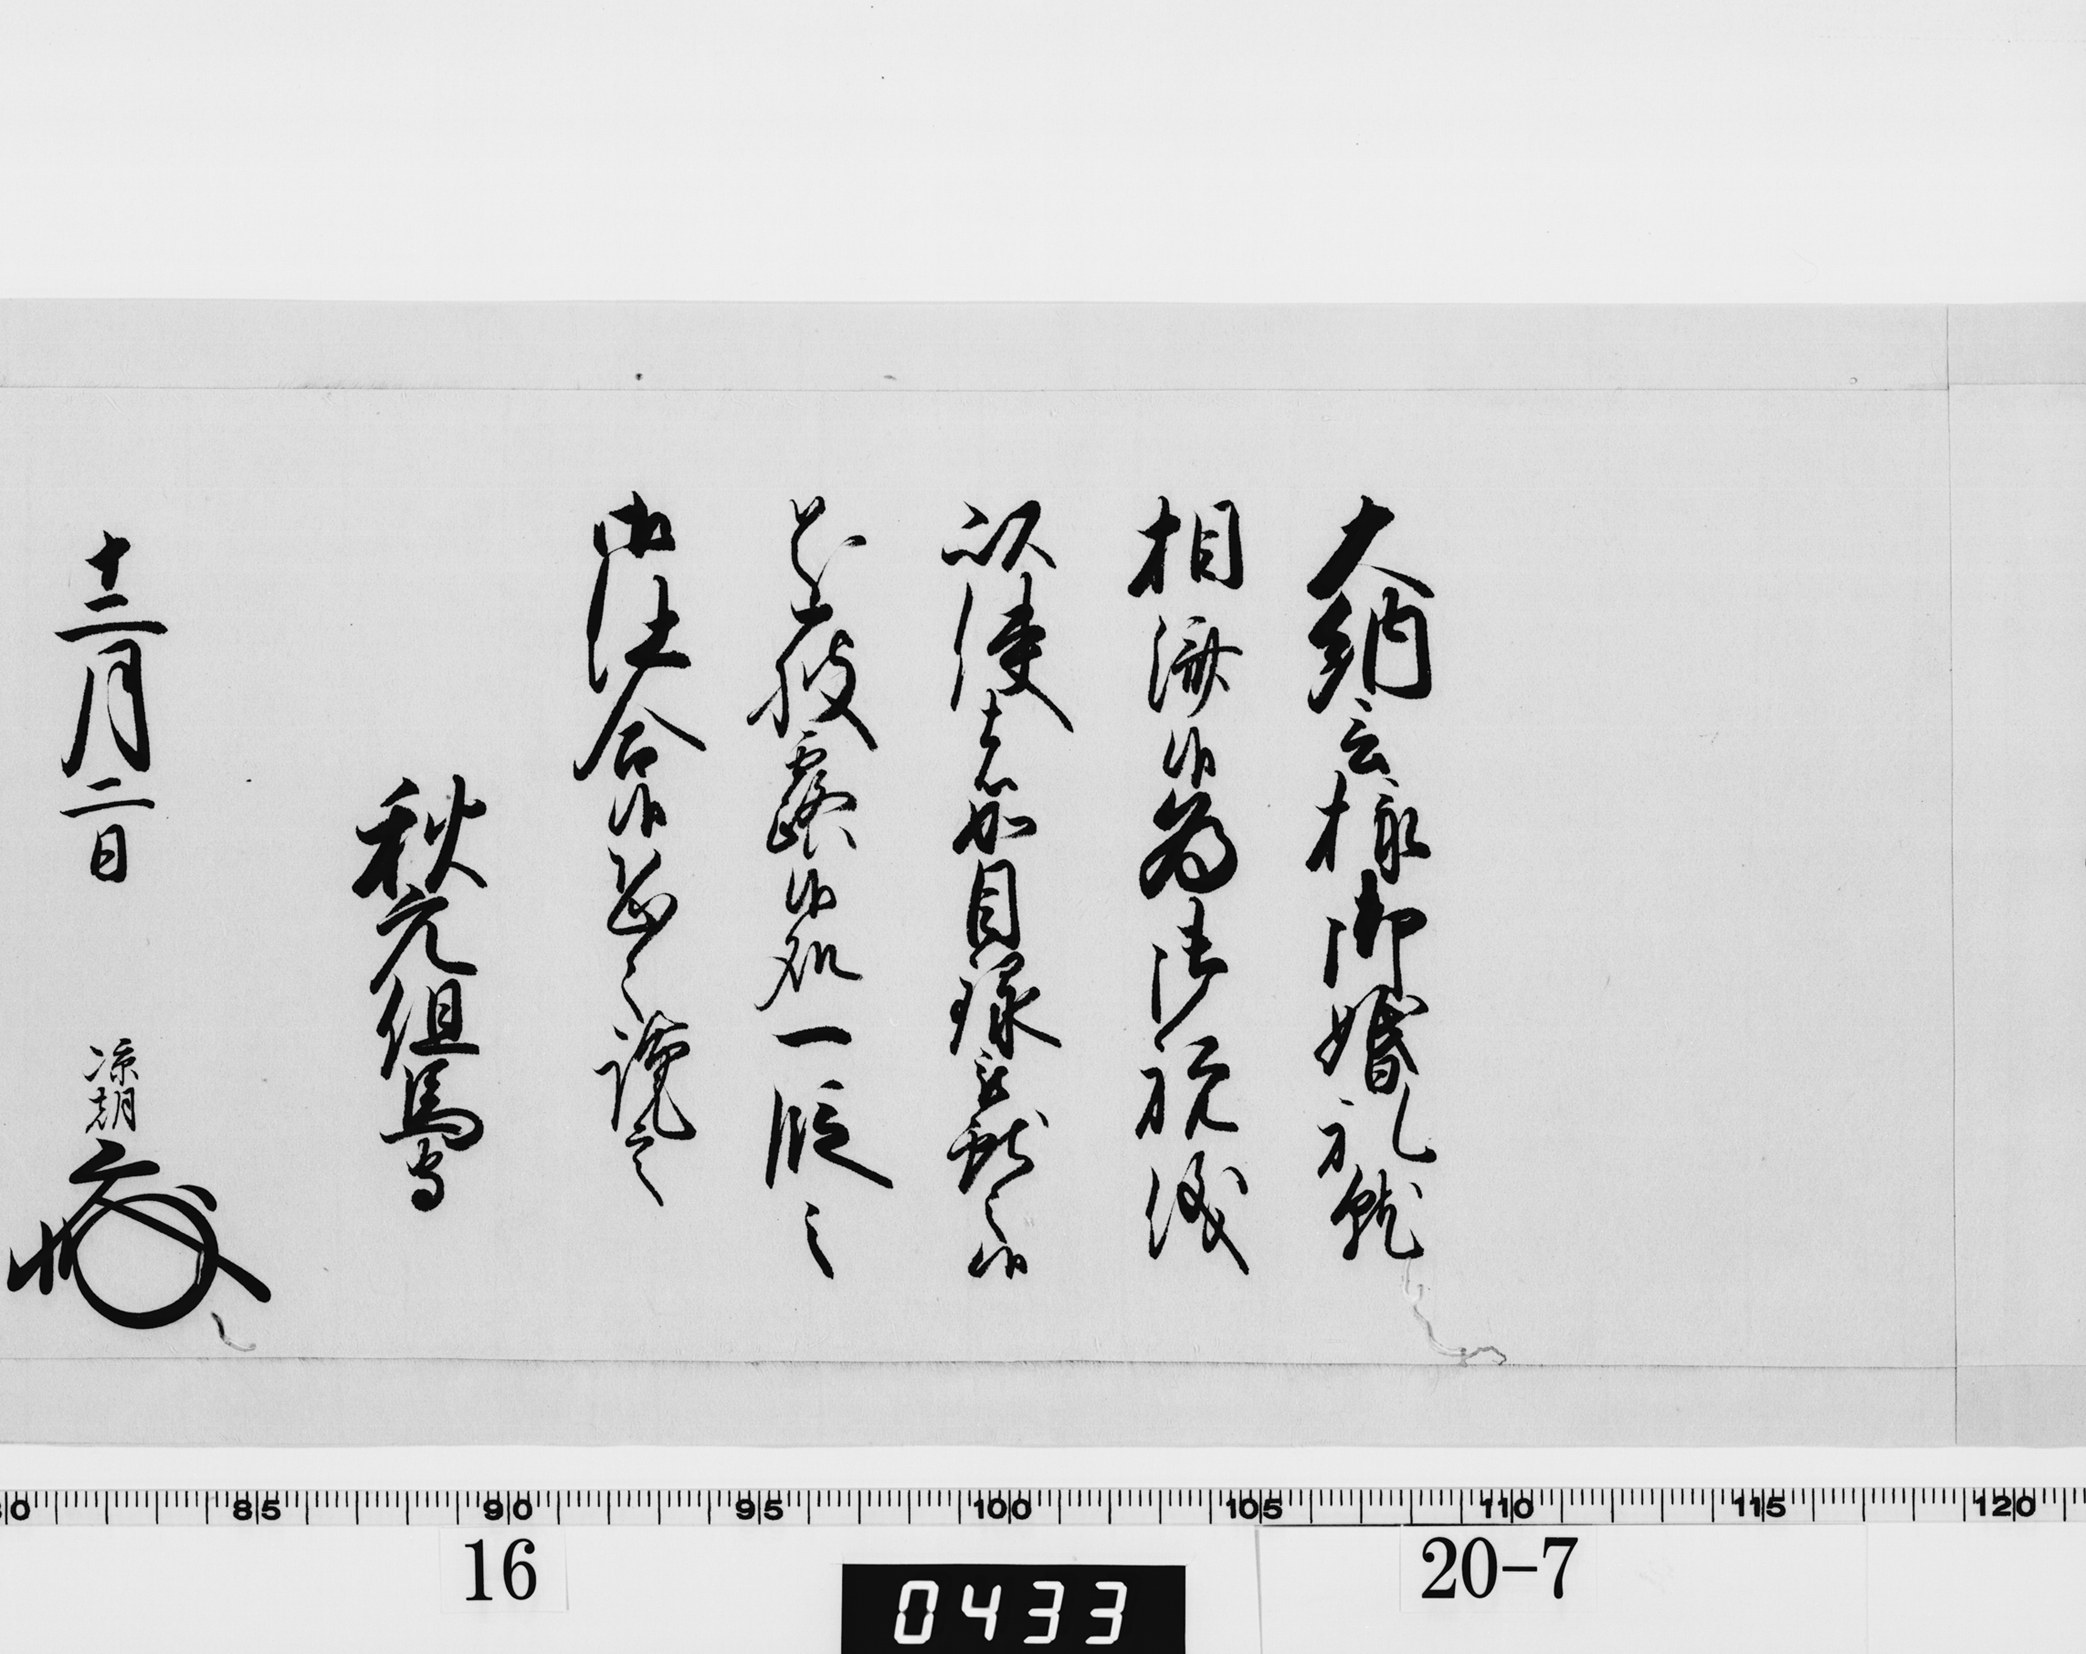 大納言様御婚礼就
相済候為御祝儀
以使者如目録被献之候
遂披露候処一段之
御仕合候恐々謹言
秋元但馬守
十二月二日 凉朝
80 85 90 95 100 105 110 115 120
16
20-7
0433